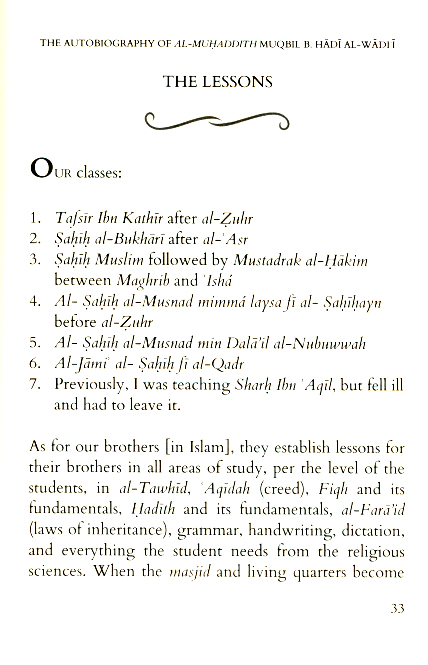 THE AUTOBIOGRAPHY OF AL-MUḤADDITH MUQBIL B. HĀDĪ AL-WĀDIʿĪ
THE LESSONS
OUR classes:
1. Tafsīr Ibn Kathīr after al-Ẓuhr
2. Ṣaḥīḥ al-Bukhārī after al-ʿAṣr
3. Ṣaḥīḥ Muslim followed by Mustadrak al-Ḥākim
between Maghrib and ʿIshá
4. Al- Ṣaḥīḥ al-Musnad mimmá laysa fī al- Ṣaḥīḥayn
before al-Ẓuhr
5. Al- Ṣaḥīḥ al-Musnad min Dalāʾil al-Nubuwwah
6. Al-Jāmiʿ al- Ṣaḥīḥ fī al-Qadr
7. Previously, I was teaching Sharḥ Ibn ʿAqīl, but fell ill
and had to leave it.
As for our brothers [in Islam], they establish lessons for
their brothers in all areas of study, per the level of the
students, in al-Tawḥīd, ʿAqīdah (creed), Fiqh and its
fundamentals, Ḥadīth and its fundamentals, al-Farāʾiḍ
(laws of inheritance), grammar, handwriting, dictation,
and everything the student needs from the religious
sciences. When the masjid and living quarters become
33